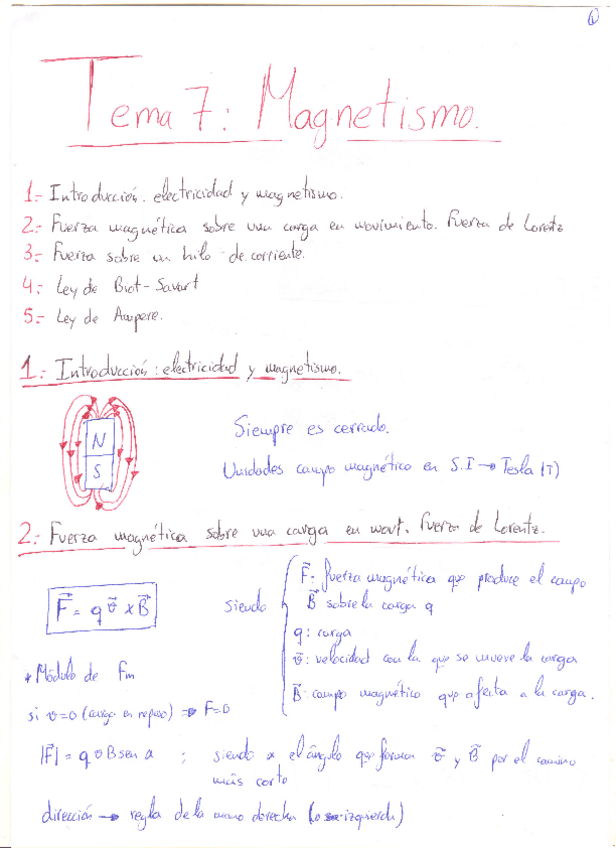 1
Tema 7: Magnetismo.
1.- Introducción. electricidad y magnetismo.
2.- Fuerza magnética sobre una carga en movimiento. Fuerza de Lorentz
3.- Fuerza sobre un hilo de corriente.
4.- Ley de Biot-Savart
5.- Ley de Ampere.
1.- Introducción: electricidad y magnetismo.
N
S
Siempre es cerrado.
Unidades campo magnético en S.I → Tesla (T)
2.- Fuerza magnética sobre una carga en movt. Fuerza de Lorentz.
F⃗ = q v⃗ x B⃗
siendo
F⃗: fuerza magnética que produce el campo
B⃗ sobre la carga q
q: carga
v⃗: velocidad con la que se mueve la carga
B⃗: campo magnético que afecta a la carga.
* Módulo de Fm
si v=0 (carga en reposo) ⇒ F=0
|F⃗| = q v B sen α ; siendo α el ángulo que forman v⃗ y B⃗ por el camino
más corto
dirección → regla de la mano derecha (o izquierda)